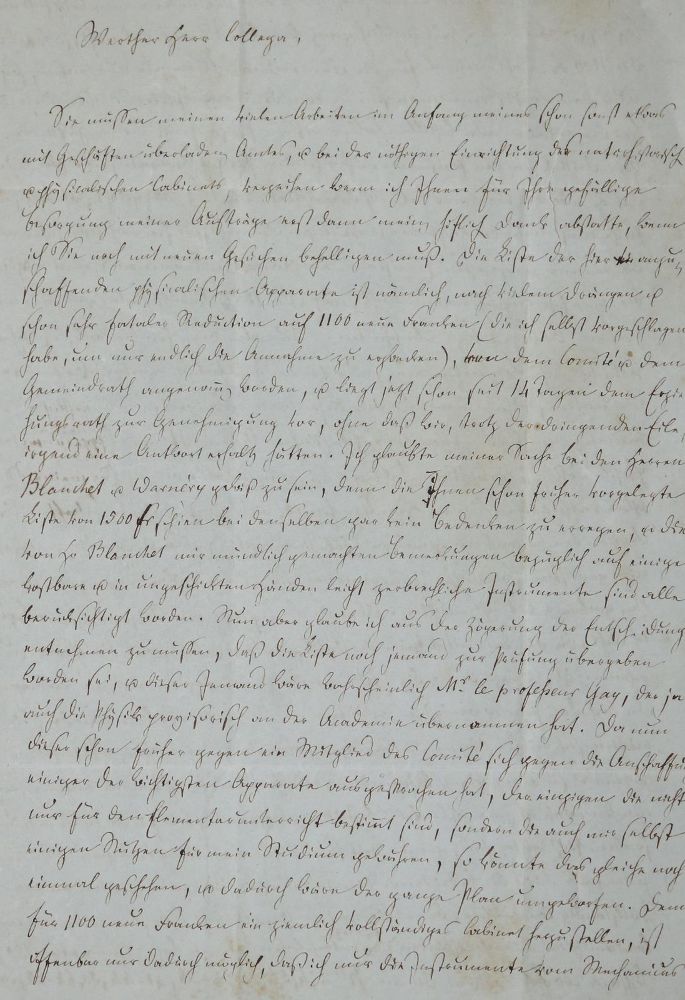 Werther Herr Collega,
Sie müssen meinen vielen Arbeiten im Anfang meines schon sonst etwas
mit Geschäften überladen Amtes, u bei der nöthigen Einrichtung des naturhistorisch
u physicalischen Cabinets, verzeihen wenn ich Ihnen für Ihre gefällige
besorgung meiner Aufträge erst dann mein höflich Dank abstatte, wenn
ich Sie noch mit neuen Gesuchen behelligen muß. Die Liste der hier anzu
schaffenden physicalischen Apparate ist nämlich, nach vielem Drängen u
schon sehr fataler Reduction auf 1100 neue Franken (die ich selbst vorgeschlagen
habe, um nur endlich die Annahme zu), von dem Comité u dem
Gemeindrath angenom worden, u liegt jetzt schon seit 14 Tagen dem Erzie
hungsrath zur Genehmigung vor, ohne daß wir, trotz der dringenden Eile,
irgend eine Antwort erhalt hätten. Ich glaubte meiner Sache bei den Herren
Blanchet u Warnéry gewiß zu sein, denn die Ihnen schon früher vorgelegte
Liste von 1500 fr schien bei denselben gar kein Bedenken zu erregen, u die
von H Blanchet mir mündlich gemachten Bemerkungen bezüglich auf einige
kostbare u in ungeschickten Händen leicht zerbrechliche Instrumente sind alle
berücksichtigt worden. Nun aber glaube ich aus der Zögerung der Entscheidung
entnehmen zu müssen, daß die Liste noch jemand zur Prüfung übergeben
worden sei, u dieser Jemand wäre wahrscheinlich Mr le professeur Gay, der ja
auch die Physik provisorisch an der Academie übernommen hat. Da nun
dieser schon früher gegen ein Mitglied des Comité sich gegen die Anschaffu
einiger der wichtigsten Apparate ausgesprochen hat, der einzigen die nicht
nur für den Elementarunterricht bestimt sind, sondern die auch mir selbst
einigen Nutzen für mein Studium gewähren, so könnte das gleiche noch
einmal geschehen, u dadurch wäre der ganze Plan umgeworfen. Denn
für 1100 neue Franken ein ziemlich vollständiges Cabinet herzustellen, ist
offenbar nur dadurch möglich, daß ich nur die Instrumente vom Mechanicus